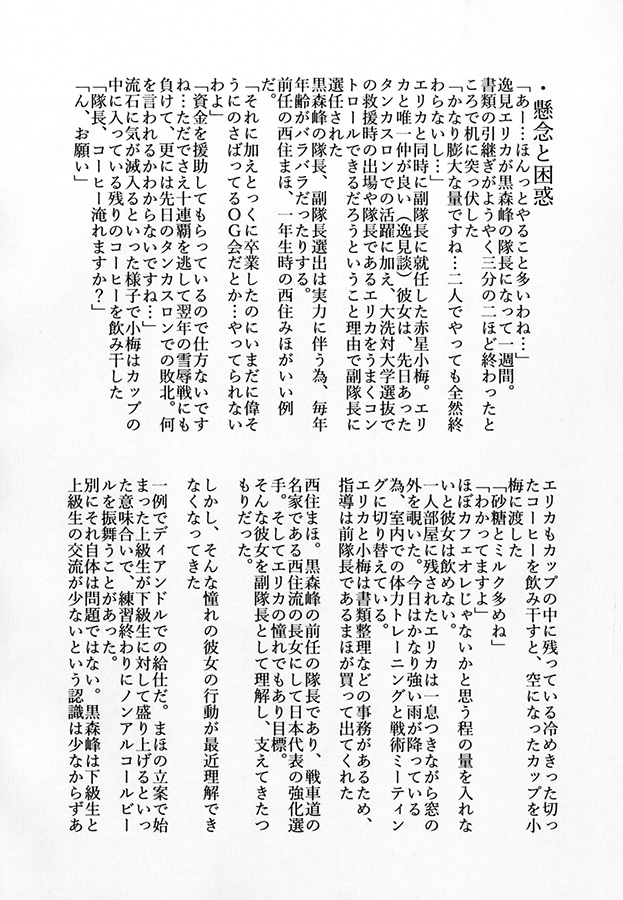 ・懸念と困惑
「あー…ほんっとやること多いわね…」
逸見エリカが黒森峰の隊長になって一週間。
書類の引継ぎがようやく三分の二ほど終わったと
ころで机に突っ伏した
「かなり膨大な量ですね…二人でやっても全然終
わらないし…」
エリカと同時に副隊長に就任した赤星小梅。エリ
カと唯一仲が良い（逸見談）彼女は、先日あった
タンカスロンでの活躍に加え、大洗対大学選抜で
の救援時の出場や隊長であるエリカをうまくコン
トロールできるだろうということ理由で副隊長に
選任された
黒森峰の隊長、副隊長選出は実力に伴う為、毎年
年齢がバラバラだったりする。
前任の西住まほ、一年生時の西住みほがいい例
だ。
「それに加えとっくに卒業したのにいまだに偉そ
うにのさばってるＯＧ会だとか…やってられない
わよ」
「資金を援助してもらっているので仕方ないです
ね…ただでさえ十連覇を逃して翌年の雪辱戦にも
負けて、更には先日のタンカスロンでの敗北。何
を言われるかわからないですね…」
流石に気が滅入るといった様子で小梅はカップの
中に入っている残りのコーヒーを飲み干した
「隊長、コーヒー淹れますか？」
「ん、お願い」
エリカもカップの中に残っている冷めきった切っ
たコーヒーを飲み干すと、空になったカップを小
梅に渡した
「砂糖とミルク多めね」
「わかってますよ」
ほぼカフェオレじゃないかと思う程の量を入れな
いと彼女は飲めない。
一人部屋に残されたエリカは一息つきながら窓の
外を覗いた。今日はかなり強い雨が降っている
為、室内での体力トレーニングと戦術ミーティン
グに切り替えている。
エリカと小梅は書類整理などの事務があるため、
指導は前隊長であるまほが買って出てくれた
西住まほ。黒森峰の前任の隊長であり、戦車道の
名家である西住流の長女にして日本代表の強化選
手。そしてエリカの憧れでもあり目標。
そんな彼女を副隊長として理解し、支えてきたつ
もりだった。
しかし、そんな憧れの彼女の行動が最近理解でき
なくなってきた
一例でディアンドルでの給仕だ。まほの立案で始
まった上級生が下級生に対して盛り上げるといっ
た意味合いで、練習終わりにノンアルコールビー
ルを振舞うことがあった。
別にそれ自体は問題ではない。黒森峰は下級生と
上級生の交流が少ないという認識は少なからずあ